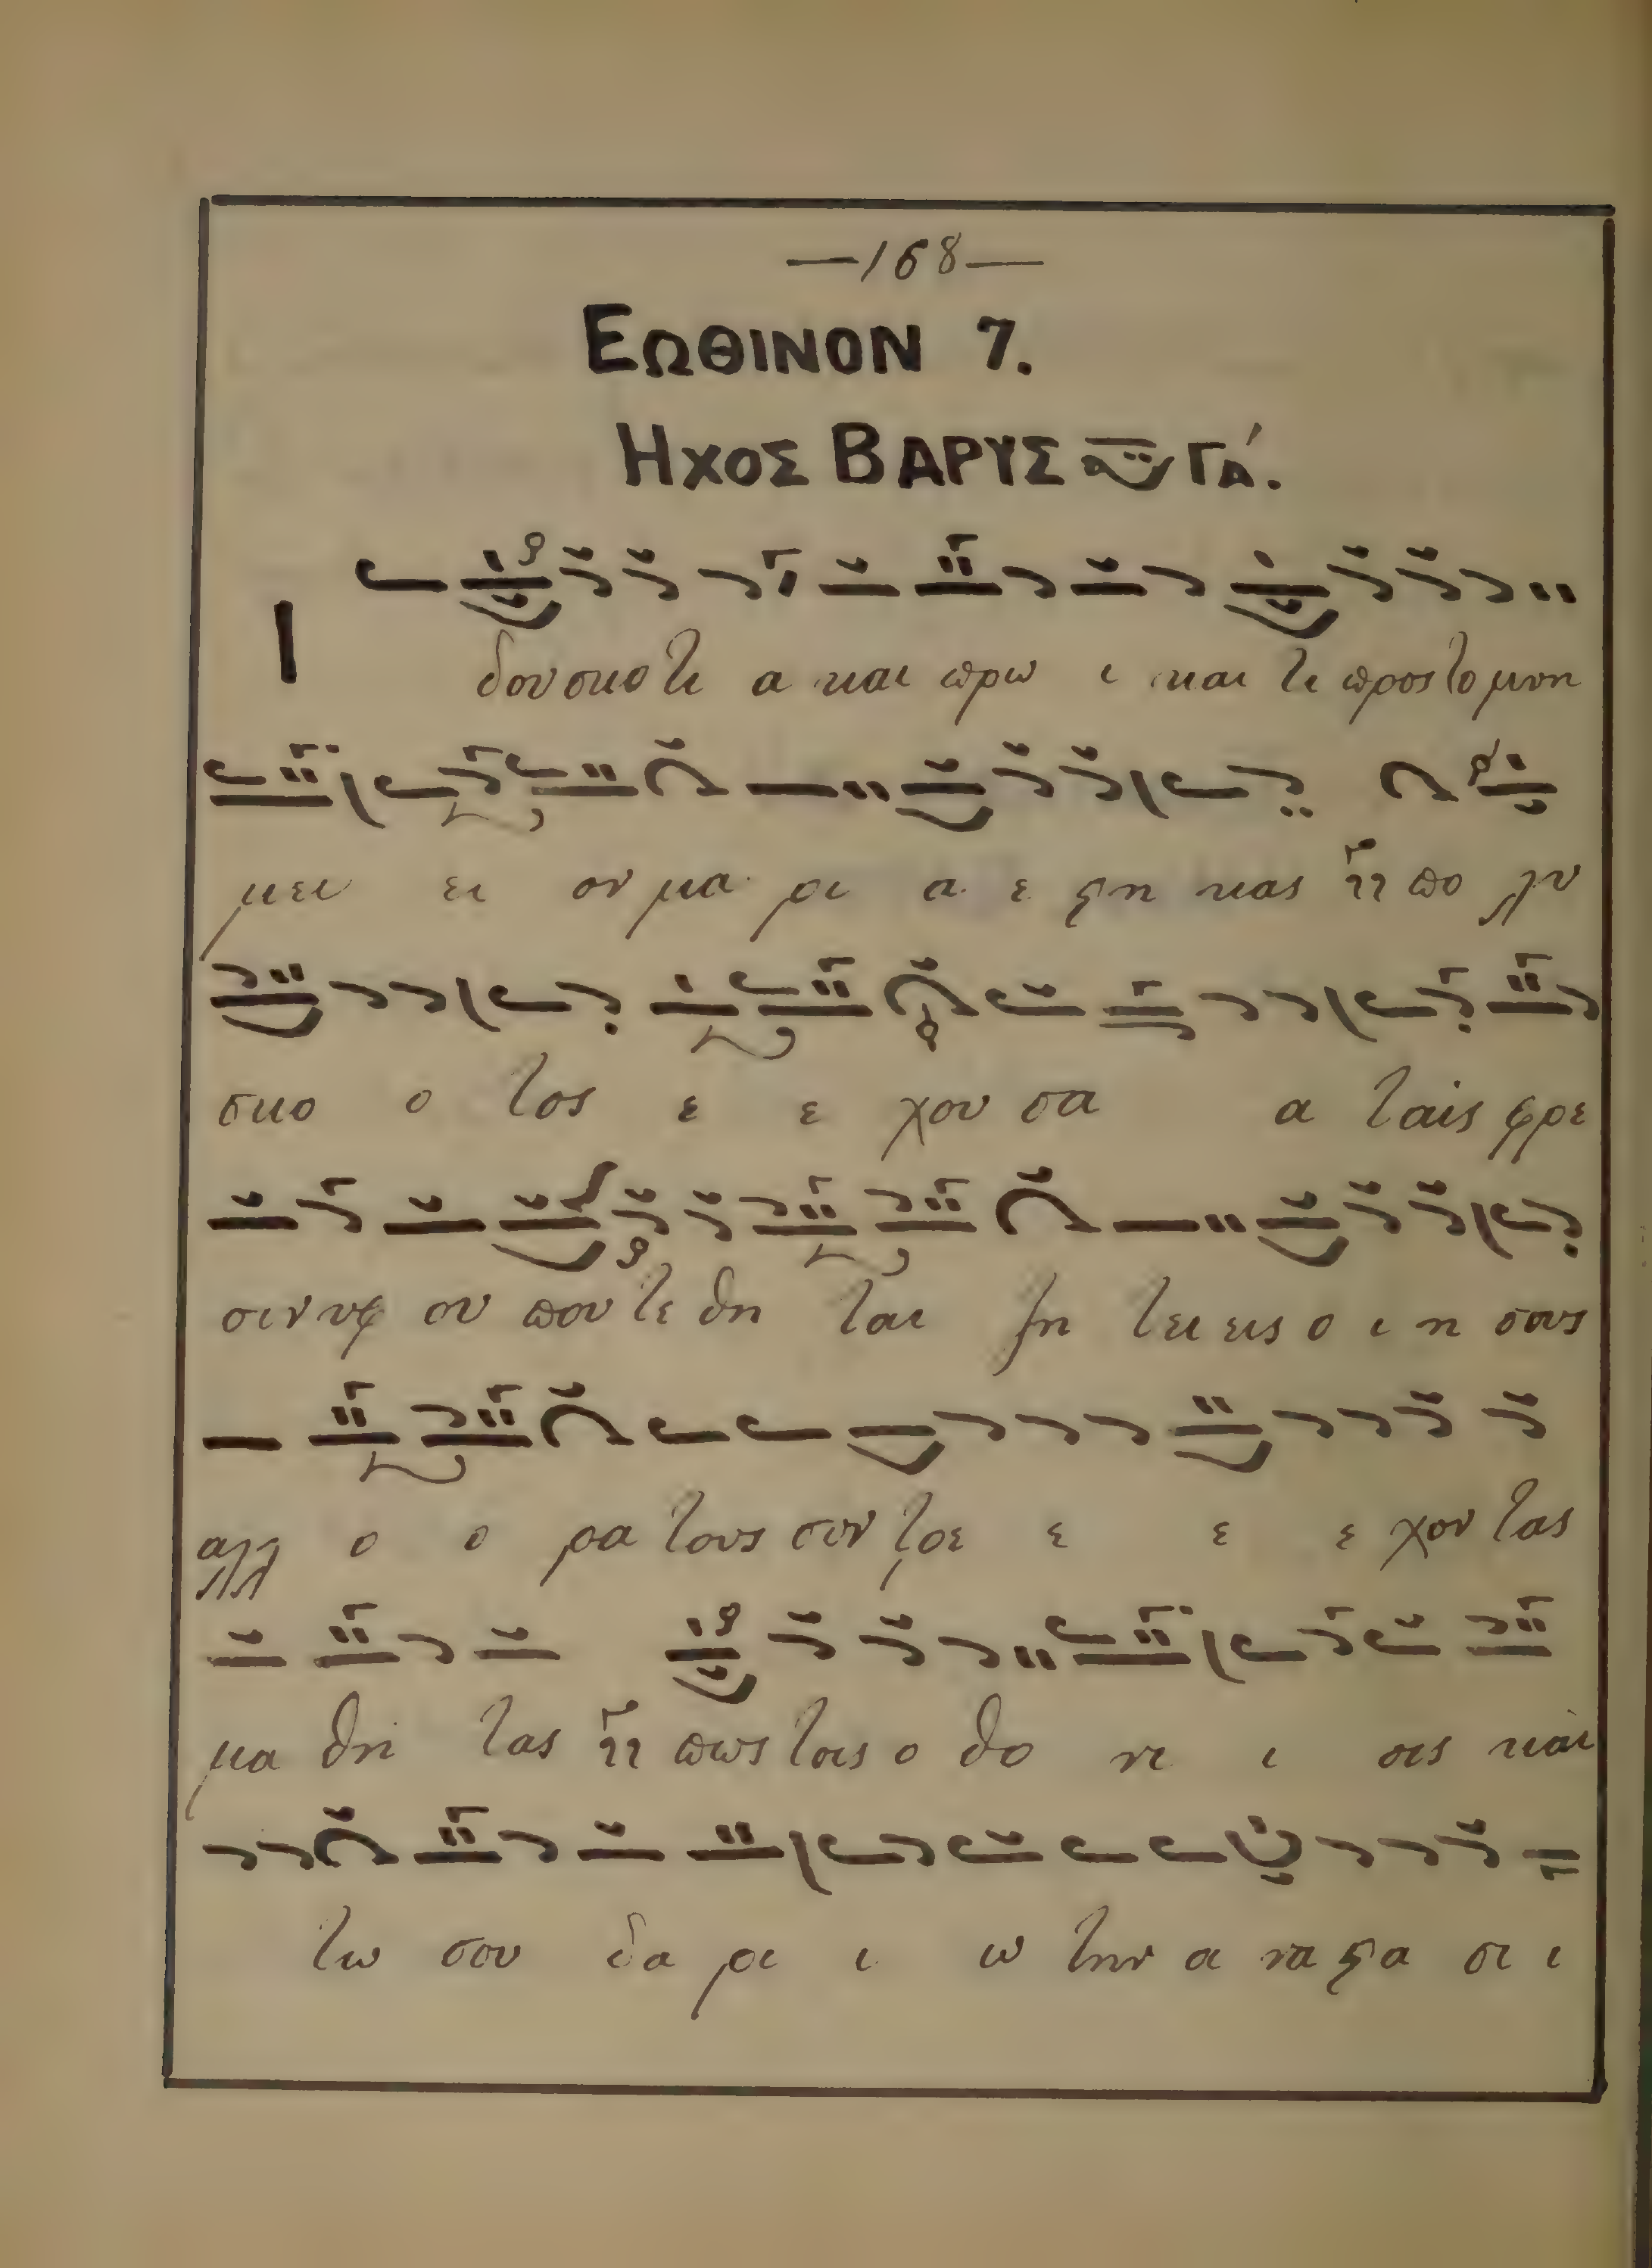 —168—
ΕΩΘΙΝΟΝ 7.
ΗΧΟΣ ΒΑΡΥΣ Γα.
Ι δου σκο τι α και πρω ι και τι προς το μνη
μει ει ον μα ρι α ε ςη κας πο λυ
σκο ο τος ε ε χου σα α ταις φρε
σιν υφ ου που τε θη ται ζη τει εις ο ι η σους
αλλ ο ο ρα τους συν τρε ε ε ε χον τας
μα θη τας πως τοις ο θο νι ι οις και
τω σου δα ρι ι ω την α να ςα σι ι